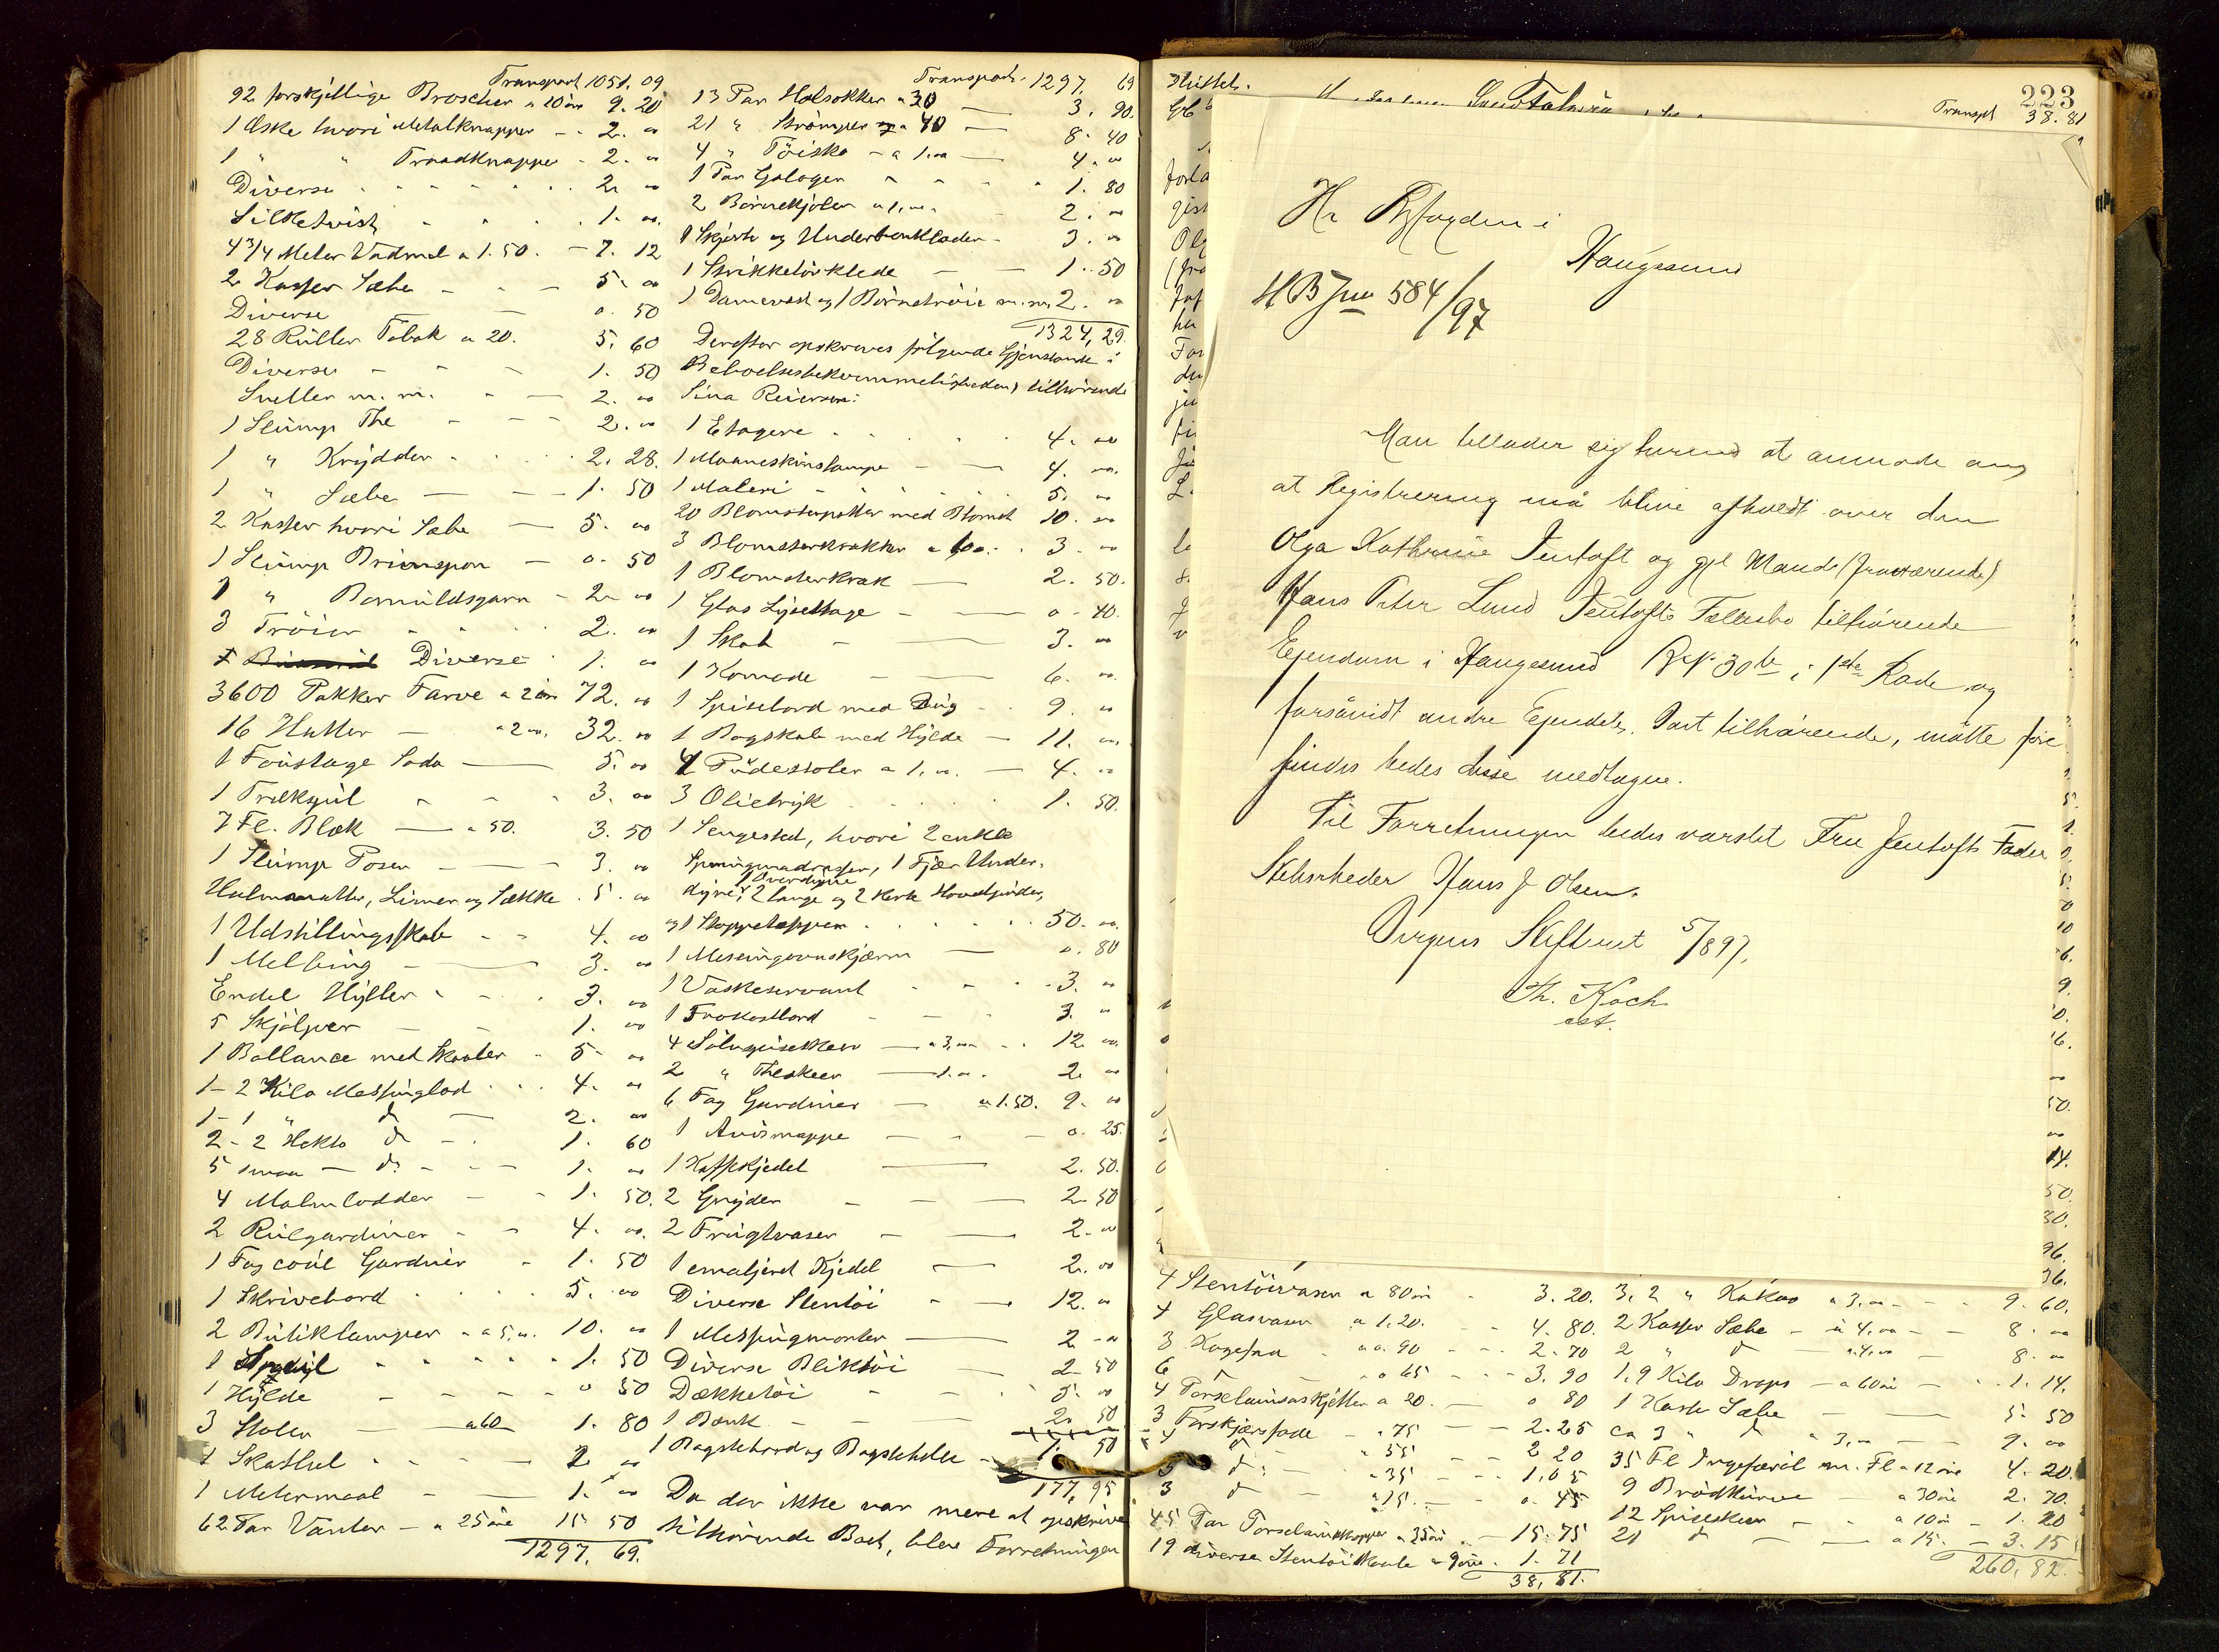 Transport 1051. 09
92 forskjellige Broscher a 10 øre 9. 20
1 Æske hvori Metalknapper - - 2. 00
1 " " Traadknapper - 2. 00
Diverse 2. 00
Silketvist 1. 00
4 3/4 Meter Vadmel a 1.50. - 7. 12
2 Kasser Sæbe 5. 00
Diverse 0. 50
28 Ruller Tobak a 20. 5. 60
Diverse 1. 50
Sneller m. m. 2. 00
1 Slump The 2. 00
1 " Krydder 2. 28.
1 " Sæbe 1. 50
2 Kasser hvori Sæbe 5. 00
1 Slump 0. 50
1 " Bomuldsgarn 2. 00
3 Trøier 2. 00
Diverse 1. 00
3600 Pakker Farve a 2 øre 72. 00
16 Hatter a 2 00. 32. 00
1 Foustage Soda 5. 00
1 3. 00
7 Fl. Blæk a 50. 3. 50
1 Slump Poser 3. 00
Halmmatter, Limer og Sække 5. 00
1 Udstillingsskab 4. 00
1 3. 00
Endel Hylder 3. 00
5 Skjølper 1. 00
1 Ballance med Skaaler 5. 00
1 - 2 Kilo Messinglod 4. 00
1 - 1 " do 2. 00
2 - 2 Hekto do 1. 60
5 smaa do 1. 00
4 Malmlodder 1. 50.
2 Rulgardiner 4. 00.
1 Fag coul Gardiner 1. 50
1 Skrivebord 5. 00
2 Butiklamper a 5,00. 10. 00
1 Speil 1. 50
1 Hylde 0 50
3 Stoler a 60 1. 80
1 2. 00
1 Metermaal 1. 00
62 Par Vanter a 25 øre 15 50
1297. 69.
Transport. 1297. 69
13 Par Halsokker a 30 3. 90.
21 " Strømper a 40 8. 40
4 " Tøisko a 1.00 4. 00
1 Par Galoger 1. 80
2 Børnekjoler a 1,00. 2. 00
1 Skjørt og Underbenklæder 3. 00
1 Strikketørklæde 1. 50
1 Damevest og 1 Børnetrøie m.m. 2. 00
1324, 29.
Derefter opskreves følgende Gjenstande i
Beboelsesbekvemmeligheden, tilhørende
Sina Reiersen:
1 Etagere 4. 00
1 Maaneskinslampe 4. 00.
1 Maleri 5. 00
20 Blomsterpotter med Blomst 10. 00
3 Blomsterkrakker a 100. 3. 00
1 Blomsterkrak 2. 50.
1 Glas Lysestage 0 - 40.
1 Skab 3. 00
1 Komode 6. 00.
1 Spisebord med Dug 9. 00
1 Bogskab med Hylde 11. 00.
4 Pudestoler a 1,00. 4. 00
3 Olietryk 1. 50.
1 Sengested, hvori 2 enkle
Springmadrasser, 1 Fjær Under-
1 Overdyne
dyne, 2 lange og 2 korte Hovedpuder,
og 1 Stoppetæppe 50. 00.
1 Messingovnskjærm 0. 80
1 Vaskeservant 3. 00
1 Frokostbord 3. 00
4 Sølvspiseskeer a 3,00 12. 00.
2 " Theskeer 1.00. 2. 00
6 Fag Gardiner a 1.50. 9. 00
1 Avismappe 0. 25.
1 Kaffekjedel 2. 50.
2 Gryder 2. 50
2 Frugtvaser 2. 00
1 emaljeret Kjedel 2. 00
Diverse Stentøi 12. 00
1 Messingmorter 2 - 00
Diverse Bliktøi 2 50
Dækketøi 5. 00
1 Bænk 2. 50
1 Bagstebord og Bagstehelle 1. 50
177, 95
Da der ikke var mere at opskrive
tilhørende Boet, blev Forretningen
223
Transpt 38. 81
Hr Byfogden i
Haugesund
H B Jno 584/97
Man tillader sig herved at anmode om
at Registrering må blive afholdt over den
Olga Kathrine Jentoft og gjl Mands (fraværende)
Hans Peter Lund Jentofts Fællesbo tilhørende
Ejendom i Haugesund R.N. 30 b i 1ste Rode og
forsåvidt andre Ejendele, Boet tilhørende, måtte fore
findes bedes disse medtagne.
Til Forretningen bedes varslet Fru Jentofts Fader
Skibsreder Hans J Olsen.
Bergens Skifteret 5/8 97.
Th. Koch
cst.
4 Stentøivaser a 80 øre 3. 20.
4 Glasvaser a 1.20. 4. 80.
3 Kagefad a 0.90 2. 70
6 a 65 3. 90
4 Porselainsaskjetter a 20. 0 80
3 Forskjærsfade a 75 2. 25
4 do a 55 2 20
3 do a 35 1, 05
3 do a 15. 0. 45
45 Par Porselainskopper a 35 øre 15. 75
19 diverse Stentøi Skaale a 9 øre. 1. 71
38, 81.
3,2 " Kakao a 3,00 9. 60.
2 Kasser Sæbe a 4,00 8. 00
2 " do a 4,00 8. 00
1,9 Kilo Drops a 60 øre 1. 14.
1 Kasse Sæbe 5. 50
ca 3 " do a 3,00 9. 00
35 Fl m. Fl a 12 øre 4. 20.
9 Brødkurve a 30 øre 2. 70.
12 Spiseskeer a 10 ø 1. 20
21 do a 15. 3. 15
260, 82.